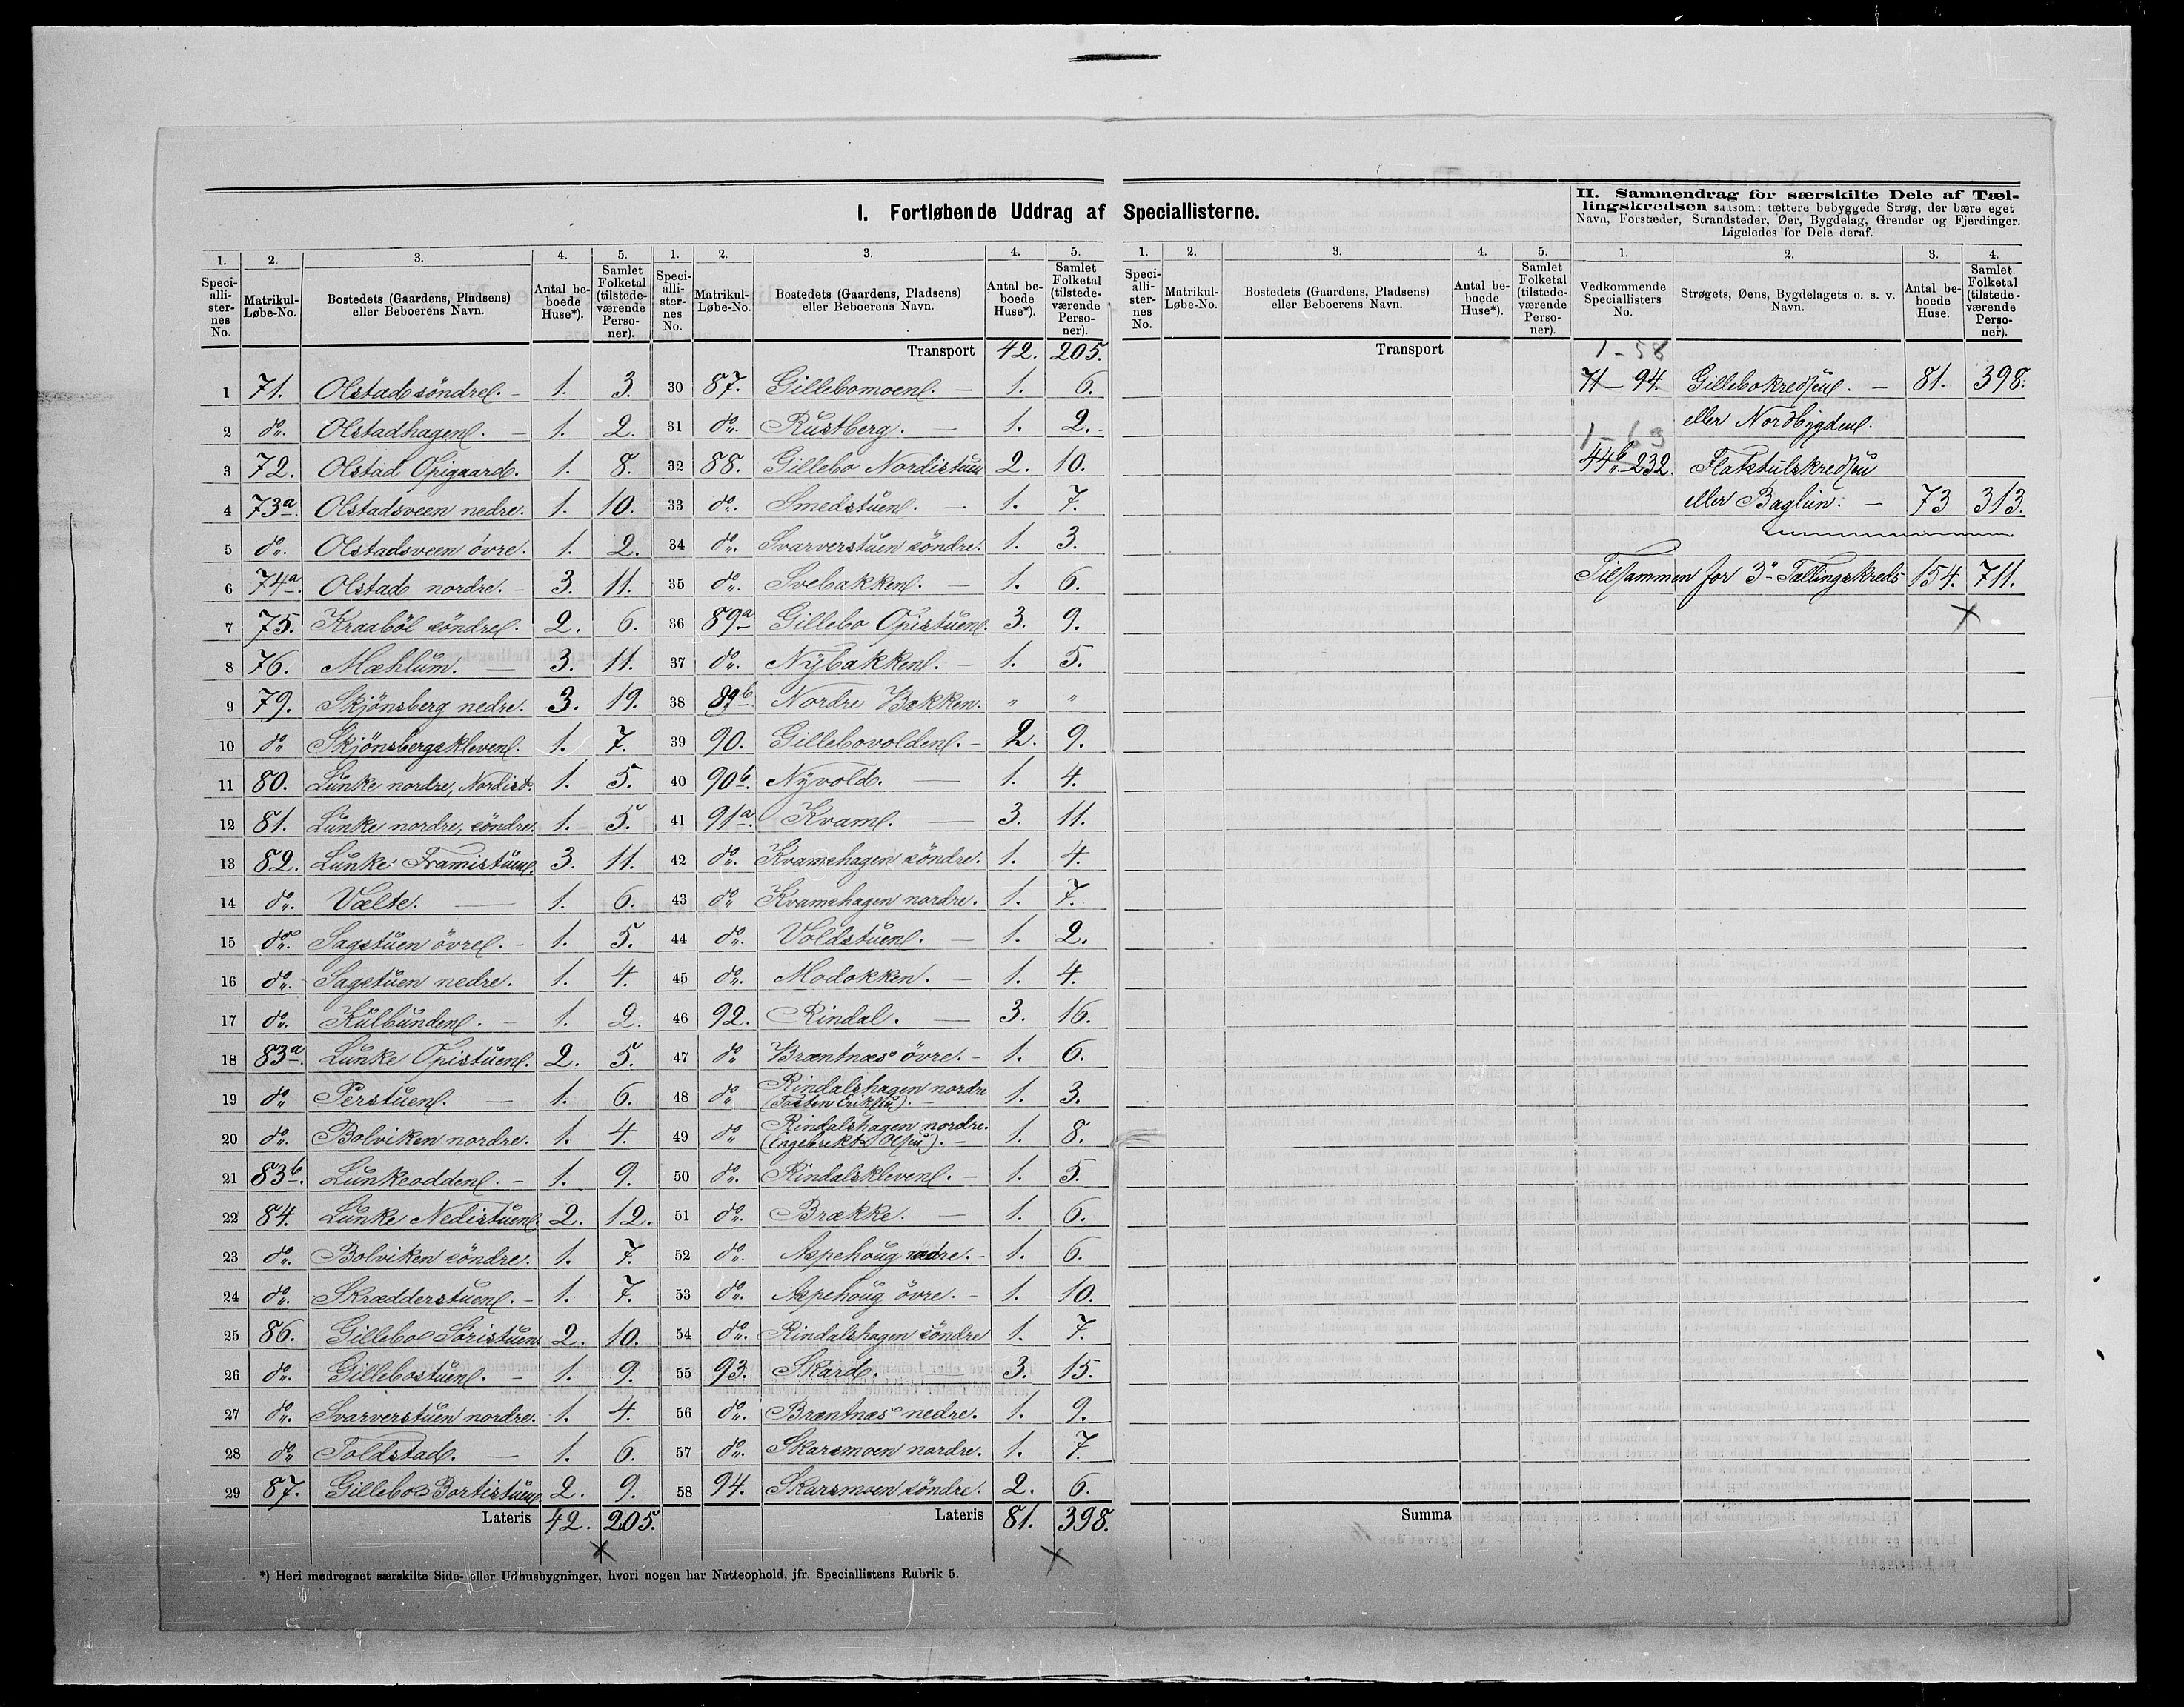 I. Fortløbende Uddrag af Speciallisterne.
II. Sammendrag for særskilte Dele af Tæl-
lingskredsen saasom: tættere bebyggede Strøg, der bære eget
Navn, Forstæder, Strandsteder, Øer, Bygdelag, Grender og Fjerdinger.
Ligeledes for Dele deraf.
1. 2. 3. 4. 5. 1. 2. 3. 4. 5.
Speciallisternes No. Matrikul-Løbe-No. Bostedets (Gaardens, Pladsens) eller Beboerens Navn. Antal beboede Huse*). Samlet Folketal (tilstedeværende Personer).
Speciallisternes No. Matrikul-Løbe-No. Bostedets (Gaardens, Pladsens) eller Beboerens Navn. Antal beboede Huse*). Samlet Folketal (tilstedeværende Personer).
1 71. Olstad söndre. - 1. 3.
2 do. Olstadhagen. - 1. 2.
3 72. Olstad Opigaard. 1. 8.
4 73a. Olstadsveen nedre. 1. 10.
5 do. Olstadsveen övre. 1. 2.
6 74a. Olstad nordre. - 3. 11.
7 75. Kraaböl söndre. 2. 6.
8 76. Mæhlum. - 3. 11.
9 79. Skjönsberg nedre. 3. 19.
10 do Skjönsbergskleven. 1. 7.
11 80. Lunke nordre, Nordist. 1. 5.
12 81. Lunke nordre, söndre. 1. 5.
13 82. Lunke Framistuen. 3. 11.
14 do. Vælte. - 1. 6.
15 do. Sagstuen övre. - 1. 5.
16 do. Sagstuen nedre. 1. 4.
17 do. Kulbunden. - 1. 2.
18 83a. Lunke Opistuen. 2. 5.
19 do Perstuen. - 1. 6.
20 do. Bolviken nordre. 1. 4.
21 83b. Lunkeodden. - 1. 9.
22 84. Lunke Nedistuen. 2. 12.
23 do. Bolviken söndre. 1. 7.
24 do. Skrædderstuen. - 1. 7.
25 86. Gillebo Söristuen. 2. 10.
26 do. Gillebostuen. - 1. 9.
27 do. Svarverstuen nordre. 1. 4.
28 do Toldstad. - 1. 6.
29 87. Gillebo Bortistuen 2. 9.
Lateris 42. 205.
Transport 42. 205.
30 87. Gillebomoen. - 1. 6.
31 do. Rustberg. - 1. 2.
32 88. Gillebo Nordistuen 2. 10.
33 do. Smedstuen. - 1. 7.
34 do. Svarverstuen söndre. 1. 3.
35 do. Svebakken. - 1. 6.
36 89a Gillebo Opistuen. 3. 9.
37 do. Nybakken. - 1. 5.
38 89b. Nordre Bakken. " "
39 90. Gillebovolden. - 2. 9.
40 90b. Nyvold. - 1. 4.
41 91a. Kvam. - 3. 11.
42 do. Kvamshagen söndre. 1. 4.
43 do Kvamshagen nordre. 1. 7.
44 do. Voldstuen. - 1. 2.
45 do. Modokken. - 1. 4.
46 92. Rindal. - 3. 16.
47 do Bræntnæs övre. - 1. 6.
48 do Rindalshagen nordre
(Tosten Eriksen). - 1. 3.
49 do Rindalshagen nordre.
(Engebrekt Olsen). - 1. 8.
50 do. Rindalskleven. - 1. 5.
51 do. Brække. - 1. 6.
52 do. Aspehoug nedre. - 1. 6.
53 do. Aspehoug övre. - 1. 10.
54 do. Rindalshagen söndre 1. 7.
55 93. Skard. - 3. 15.
56 do. Bræntnæs nedre. 1. 9.
57 do. Skarsmoen nordre. 1. 7.
58 94. Skarsmoen söndre. 2. 6.
Lateris 81. 398.
*) Heri medregnet særskilte Side- eller Udhusbygninger, hvori nogen har Natteophold, jfr. Speciallistens Rubrik 5.
1. 2. 3. 4. 5. 1. 2. 3. 4.
Speciallisternes No. Matrikul-Løbe-No. Bostedets (Gaardens, Pladsens) eller Beboerens Navn. Antal beboede Huse*). Samlet Folketal (tilstedeværende Personer).
Vedkommende Speciallisters No. Strøgets, Øens, Bygdelagets o. s. v. Navn. Antal beboede Huse. Samlet Folketal (tilstedeværende Personer).
Transport
Summa
1-58
71-94. Gillebokredsen. - 81. 398.
eller Nordbygden.
1-63
44b-232. Flakstulskredsen
eller Baglien. - 73 313.
Tilsammen for 3die Tællingskreds 154. 711.